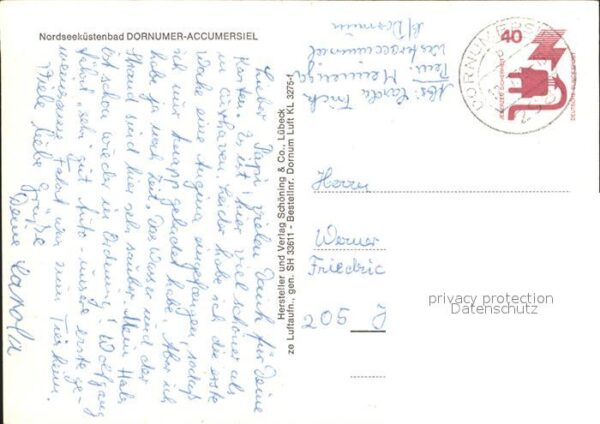 Nordseeküstenbad DORNUMER-ACCUMERSIEL
Lieber Papi, vielen Dank für Deine
Karten. Es ist hier viel schöner als
in Cuxhaven. Leider habe ich die erste
Woche eine Angina empfangen, sodaß
ich nur knapp gebadet habe. Aber ich
habe ja noch Zeit. Das Wasser und der
Strand sind hier sehr sauber. Mein Hals
ist schon wieder in Ordnung. Wolfgang
fährt "sehr" gut Auto - unsere erste ge-
meinsame Fahrt war zum Tierheim.
Viele liebe Grüße
Deine Carola
Hersteller und Verlag Schöning & Co., Lübeck
ze Luftaufn., gen. SH 33611 - Bestellnr. Dornum Luft KL 3275-f
Abs: Carola Frick
Pens. Meininga
Westeraccumersiel
b/ Dornum
DORNUMERSIEL
40
DEUTSCHE BUNDESPOST
Herrn
Werner
Friedric
205
privacy protection
Datenschutz